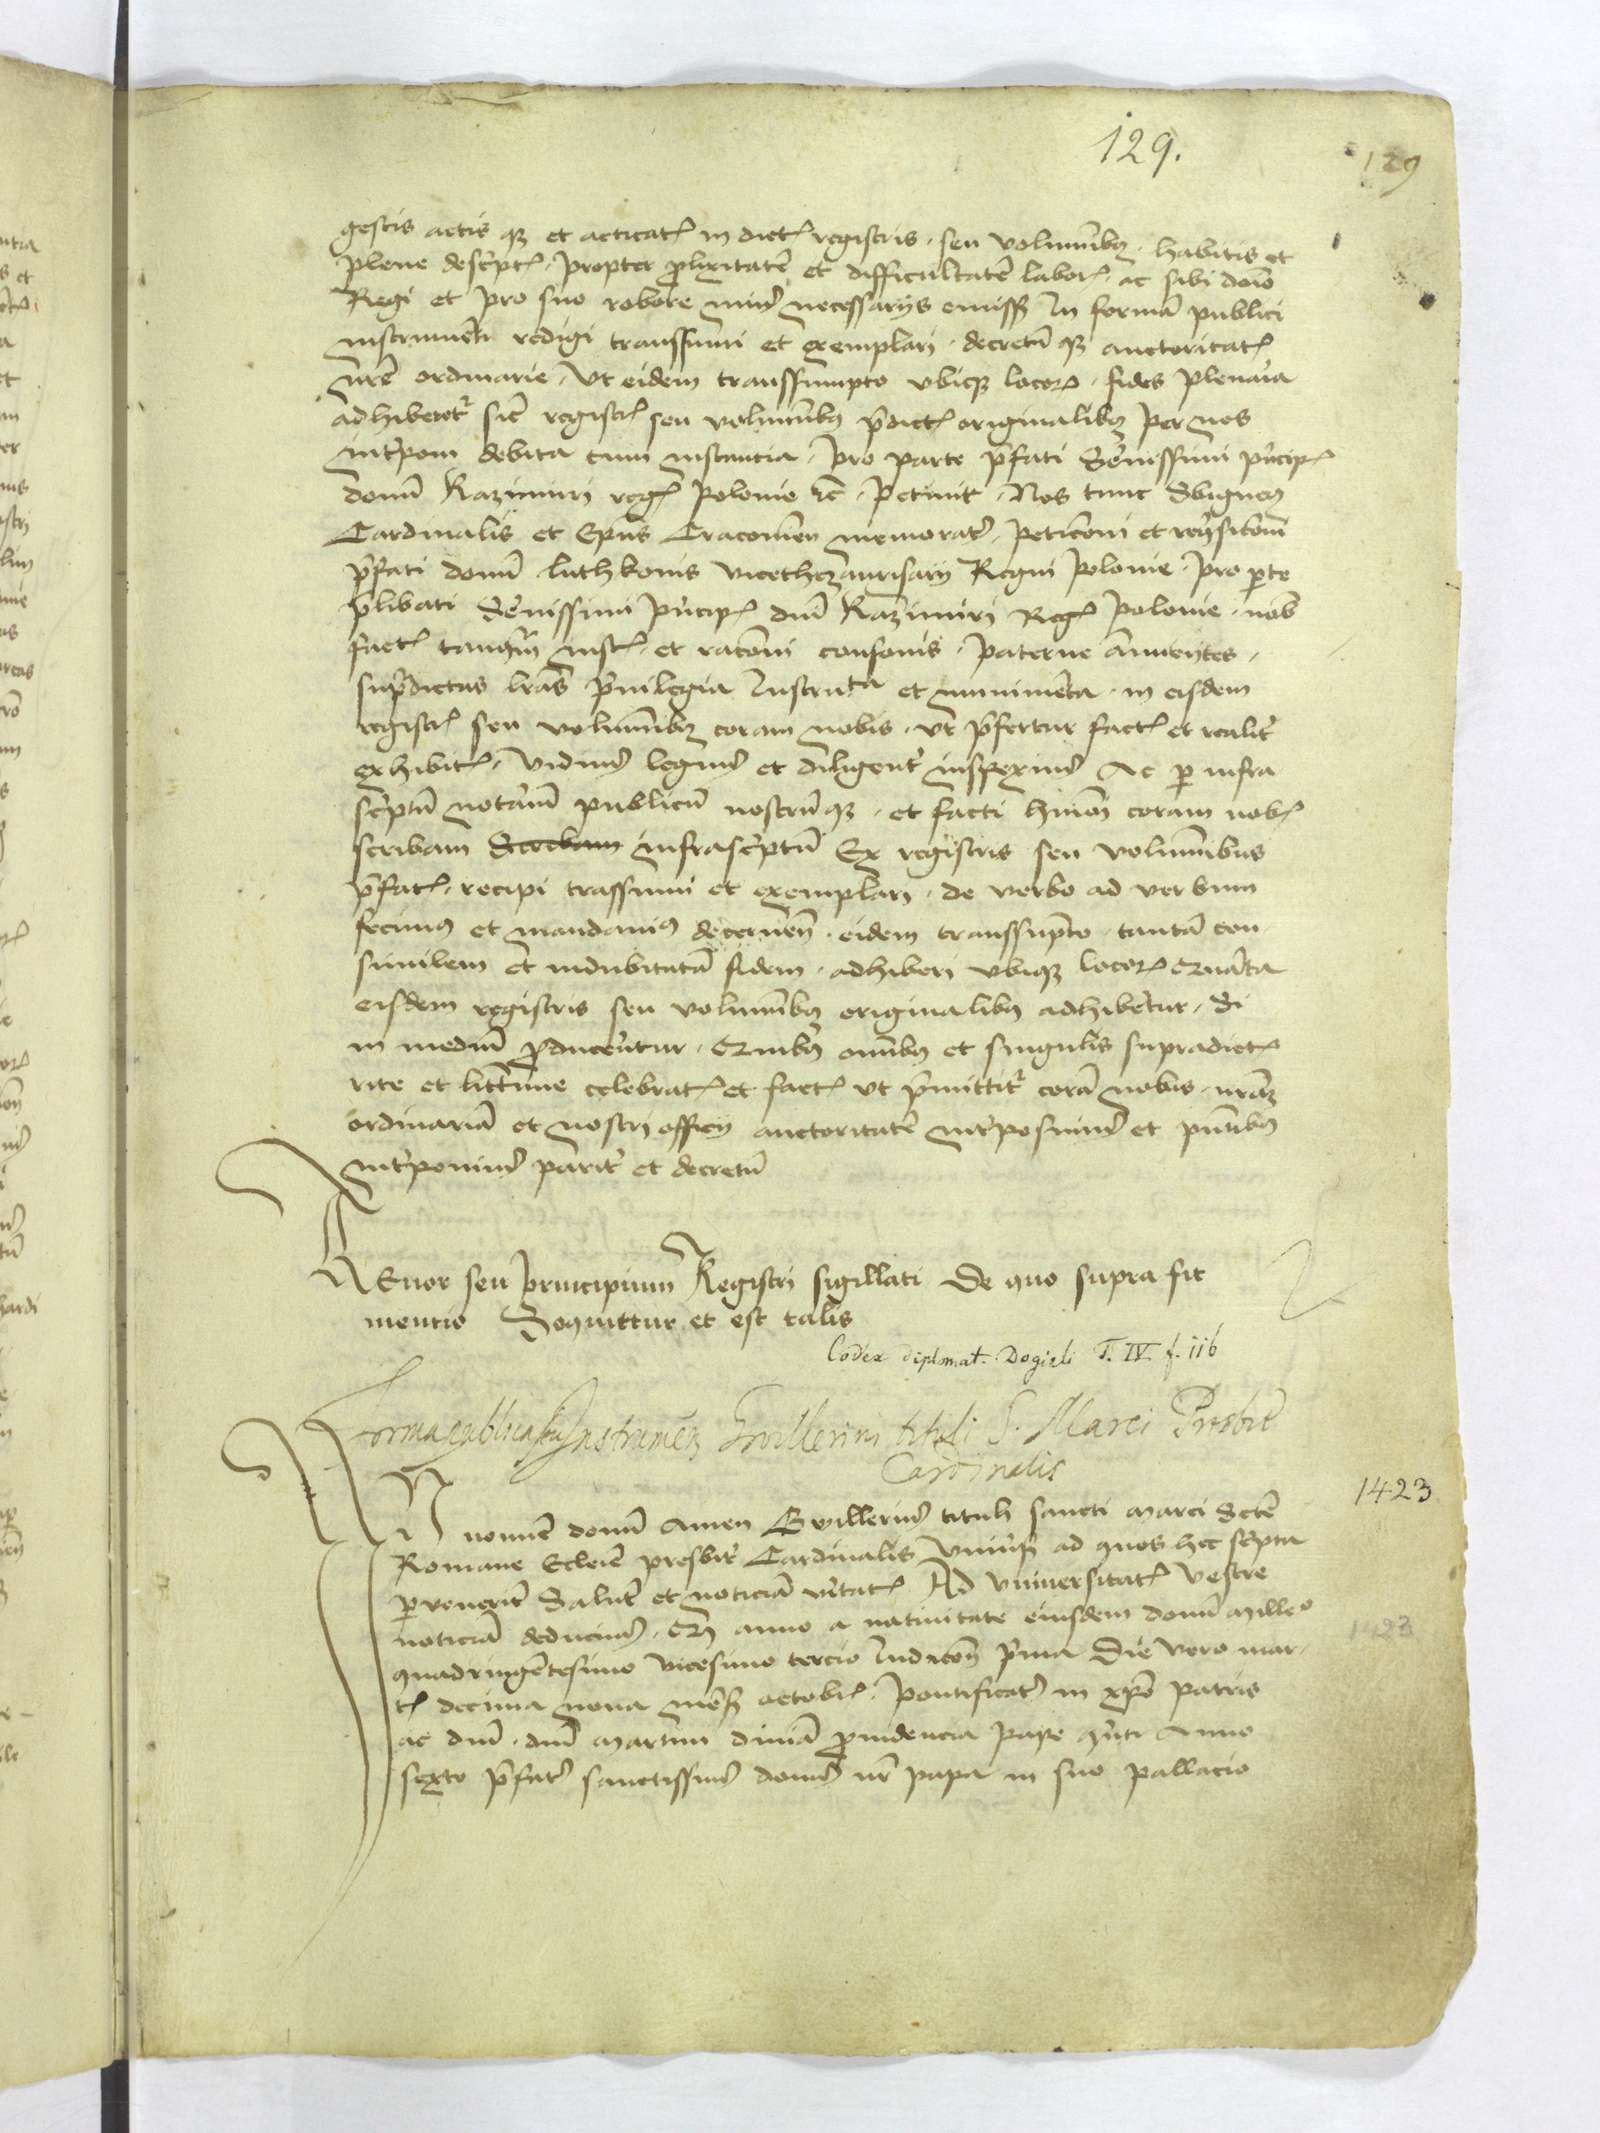 129.
129
gestis actis q3 et acticat in dict registris · seu volumibus · habitis et
plene descript · propter prolixitate et difficultate labor · ac sibi domino
Regi et pro suo robore minus necessariis omiss In forma publici
instrumenti redigi transsumi et exemplari · decretu q3 auctoritat
nre ordinarie · Ut eidem transsumpto ubiq3 locor · fides plenaria
adhiberetur sic registr seu volumibus pdict originalibus per nos
interponi debita cum instancia · pro parte pfati Serenissimi princip
domini Kazimiri reg Polonie etc · petiuit · Nos tunc Sbigneus
Cardinalis et Epus Cracouien memoratus · peticoni et requisicoi
pfati domini luthkonis vicethezaurisarij Regni Polonie · pro pte
plibati Serenissimi princip dni Kazimiri Reg Polonie · nob
fact tanqm iust et raconi consonis · paterne annuentes ·
supradictas lras priuilegia Instruta et munimenta · in eisdem
registr seu volumibus coram nobis · ut pfertur fact et realiter
exhibit · Vidimus legimus et diligenter inspeximus Ac p infra
scriptu notariu publicu nostru q3 · et facti huiusmodi coram nob
scribam infrascriptu Ex registris seu voluminibus
pfat · recipi trassumi et exemplari · de verbo ad verbum
fecimus et mandauimus decernen · eidem transsupto · tanta con
similem et indubitata fidem · adhiberi ubiq3 locor Quanta
eisdem registris seu volumibus originalibus adhibetur · Si
in mediu producerentur · Quibus omibus et singulis supradict
rite et littime celebrat et fact ut pmittitr cora nobis · nram
ordinaria et nostri officij auctoritate interposuimus et pntibus
interponimus pariter et decretu
TEnor seu principium Registri sigillati De quo supra fit
mencio Sequittur et est talis
Codex diplomat. Dogieli T. IV. f. 116
Forma publica Instrumen Guillerini tituli S. Marci Presbit
Cardinalis
1423
IN nomine domini Amen Guillerinus tituli sancti Marci Scte
Romane Ecleie presbiter Cardinalis Uniuers ad quos hec scripta
peruenerit Salute et noticia veritat Ad Vniuersitat vestre
noticia deducimus · Q anno a natiuitate eiusdem domini Mille
1423
quadringetesimo vicesimo tercio Indicon prima Die vero mar
t decima nona mens octobr · Pontificatus in xpo patris
ac dni · dni Martini diuina prouidencia pape quinti Anno
sexto pfatus sanctissimus dominus nr papa in suo pallacio